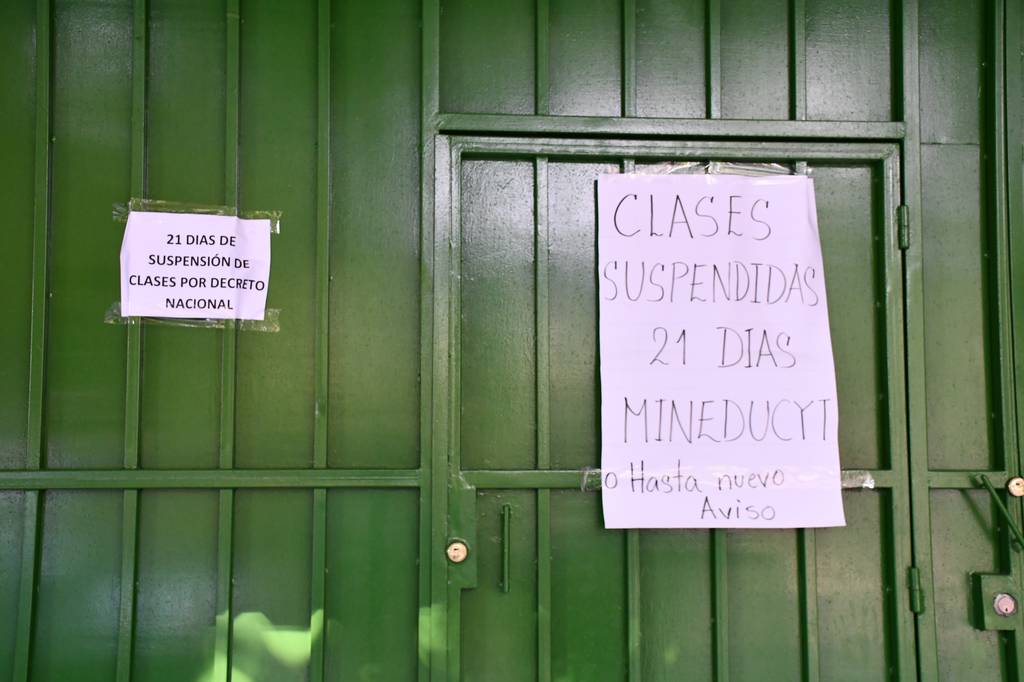 21 DIAS DE
SUSPENSIÓN DE
CLASES POR DECRETO
NACIONAL
CLASES
SUSPENDIDAS
21 DIAS
MINEDUCYT
o Hasta nuevo
Aviso